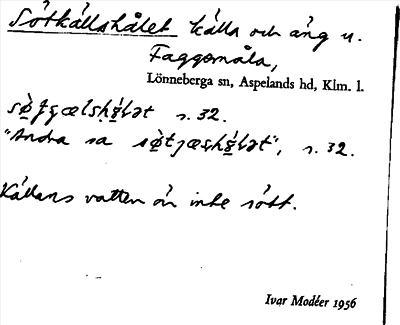 Sötkällshålet källa och äng u.
Faggemåla,
Lönneberga sn, Aspelands hd, Klm. l.
s. 32.
"Andra sa s. 32.
Källans vatten är inte sött.
Ivar Modéer 1956